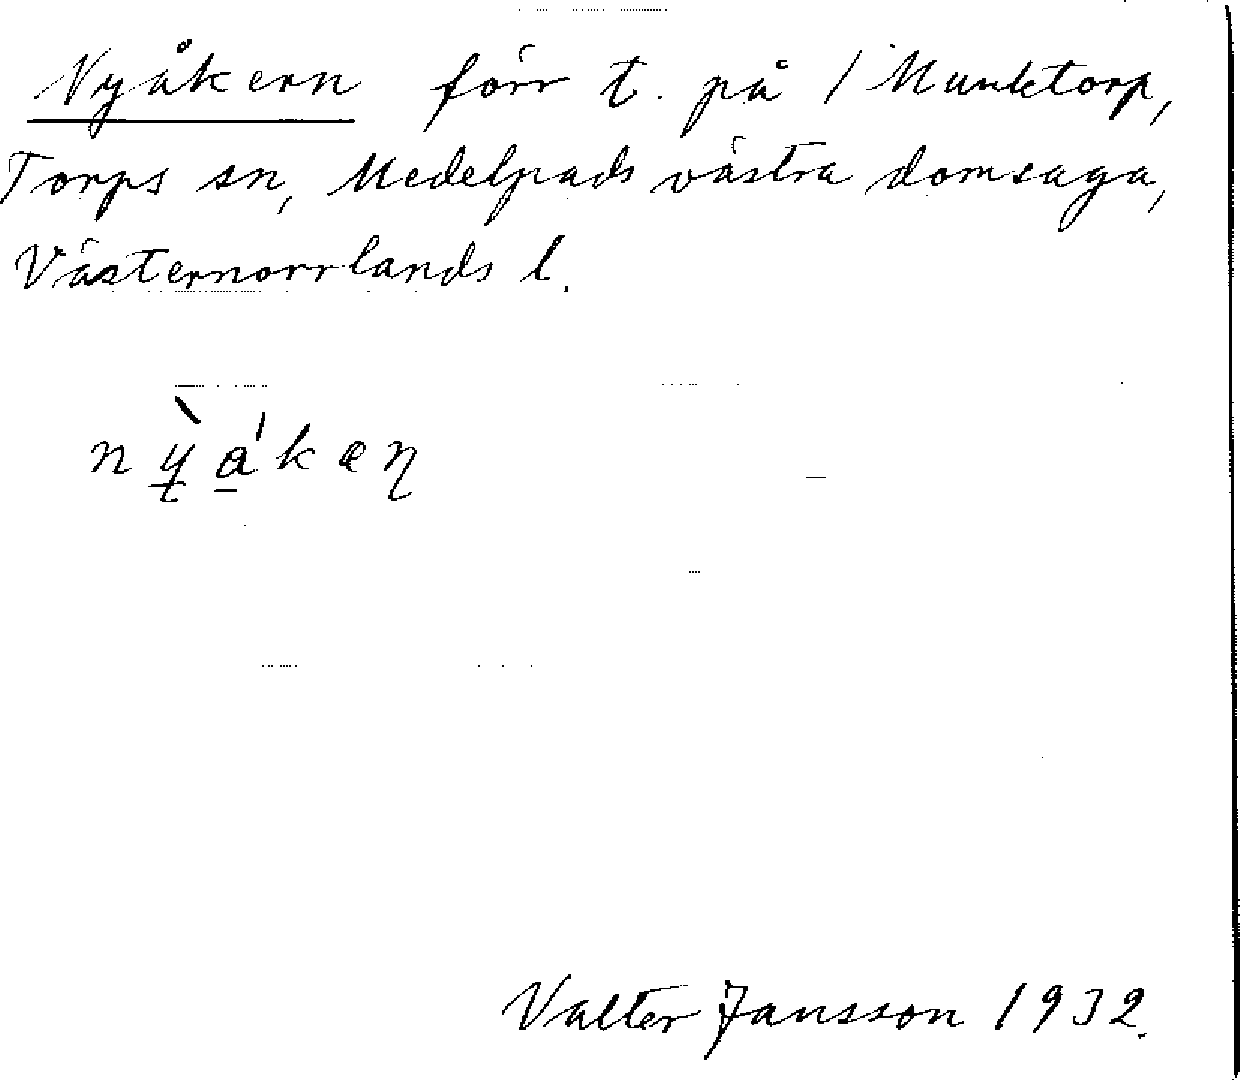 Nyåkern förr t. på 1 Munktorp,
Torps sn, Medelpads västra domsaga,
Västernorrlands l.
nỳa'keɳ
Valter Jansson 1932.